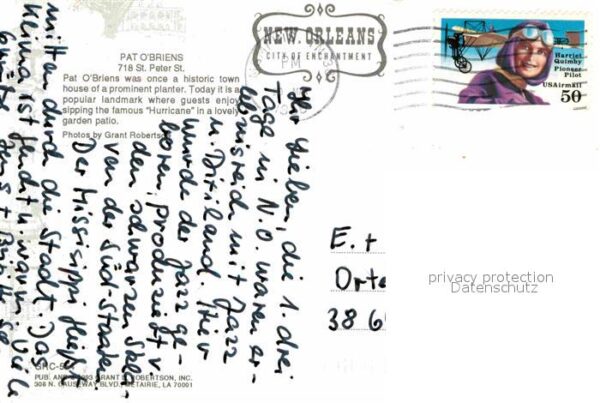 PAT O'BRIENS
718 St. Peter St.
Pat O'Briens was once a historic town
house of a prominent planter. Today it is a
popular landmark where guests enjoy
sipping the famous "Hurricane" in a lovely
garden patio.
Photos by Grant Robertson
NEW ORLEANS
CITY OF ENCHANTMENT
PM
Harriet
Quimby
Pioneer
Pilot
USAirmail
50
Lieben, die 1. drei
Tage in N.O. waren er-
lebnisreich mit Jazz
u. Dixiland. Hier
wurde der Jazz ge-
boren, produziert v.
den schwarzen Skla-
ven der Süd-Staaten.
Der Mississippi fließt
mitten durch die Stadt. Das
Klima ist feucht u. warm. Viele
E. +
Orte
38 6
privacy protection
Datenschutz
GRC-
PUB. AND GRANT L. ROBERTSON, INC.
308 N. CAUSEWAY BLVD., METAIRIE, LA 70001